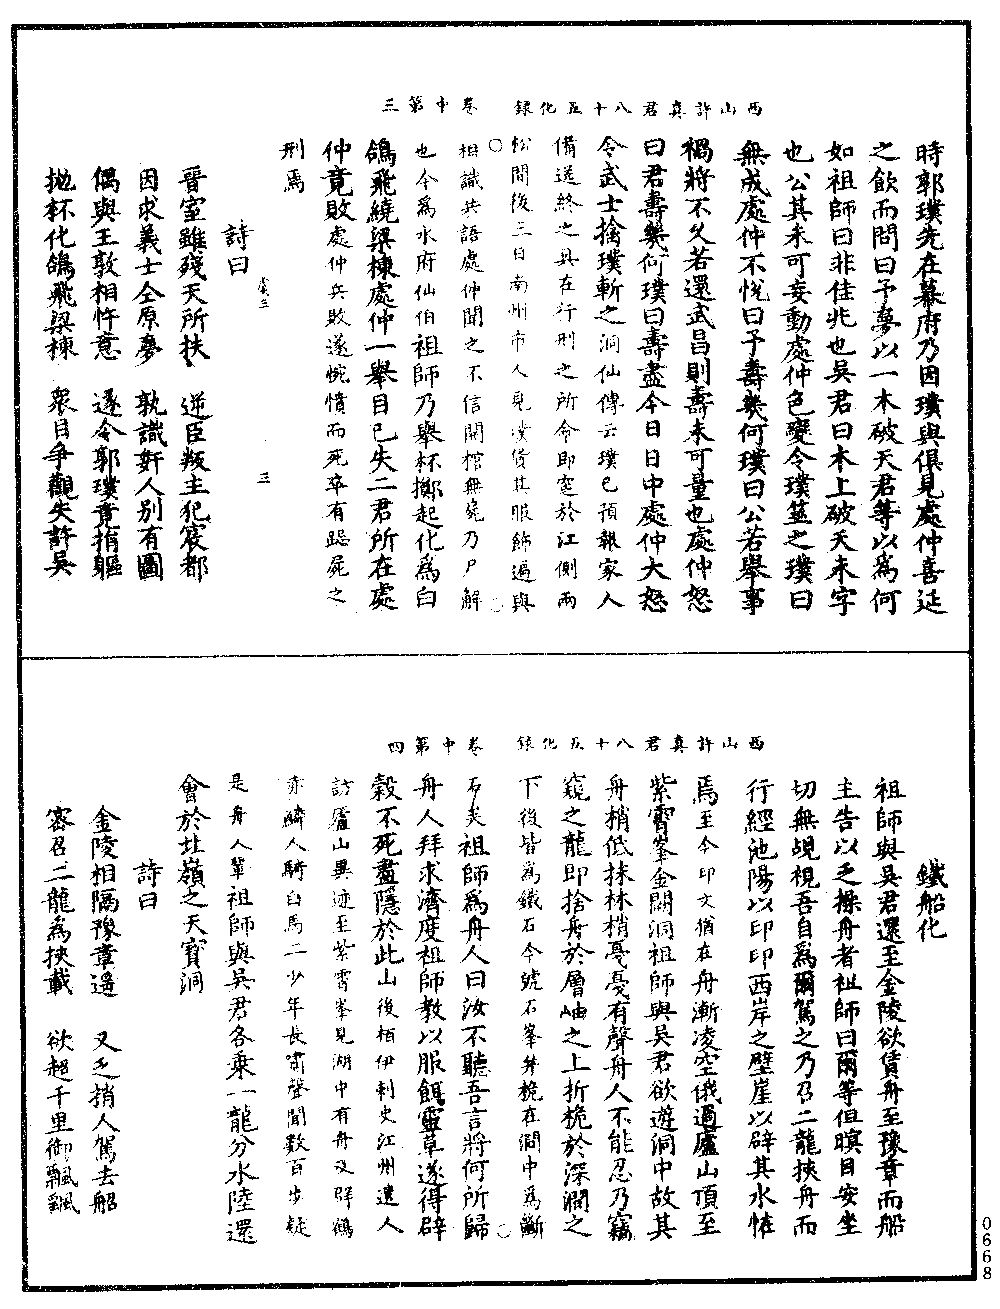 西山許真君八十五化錄　卷中第三
時郭璞先在幕府乃因璞與俱見處仲喜延
之飲而問曰予夢以一木破天君等以為何
如祖師曰非佳兆也吳君曰木上破天未字
也公其未可妄動處仲色變令璞筮之璞曰
無成處仲不悅曰予壽幾何璞曰公若舉事
禍將不久若還武昌則壽未可量也處仲怒
曰君壽幾何璞曰壽盡今日日中處仲大怒
令武士擒璞斬之洞仙傳云璞已預報家人
備送終之具在行刑之所命即窆於江側兩
松間後三日南州市人見璞貨其服飾遍與
相識共語處仲聞之不信開棺無屍乃尸解
也今為水府仙伯祖師乃舉杯擲起化為白
鴿飛繞梁棟處仲一舉目已失二君所在處
仲竟敗處仲兵敗遂惋憤而死卒有跽屍之
刑焉
詩曰
晉室雖殘天所扶　逆臣叛主犯宸都
因求義士仝原夢　孰識奸人別有圖
偶與王敦相忤意　遂令郭璞竟捐軀
拋杯化鴿飛梁棟　眾目爭觀失許吳
三
西山許真君八十五化錄　卷中第四
鐵船化
祖師與吳君還至金陵欲賃舟至豫章而船
主告以乏操舟者祖師曰爾等但瞑目安坐
切無覘視吾自為爾駕之乃召二龍挾舟而
行經池陽以印印西岸之壁崖以辟其水怪
焉至今印文猶在舟漸凌空俄過廬山頂至
紫霄峯金闕洞祖師與吳君欲遊洞中故其
舟梢低抹林梢戛戛有聲舟人不能忍乃竊
窺之龍即捨舟於層岫之上折桅於深澗之
下後皆為鐵石今號石峯并桅在澗中為斷
石矣祖師為舟人曰汝不聽吾言將何所歸
舟人拜求濟度祖師教以服餌靈草遂得辟
穀不死盡隱於此山後栢伊刺史江州遣人
訪廬山異迹至紫霄峯見湖中有舟及群鶴
赤鱗人騎白馬二少年長嘯聲聞數百步疑
是舟人輩祖師與吳君各乘一龍分水陸還
會於北嶺之天寶洞
詩曰
金陵相隔豫章遙　又乏捎人駕去船
密召二龍為挾載　欲超千里御飄飄
0668